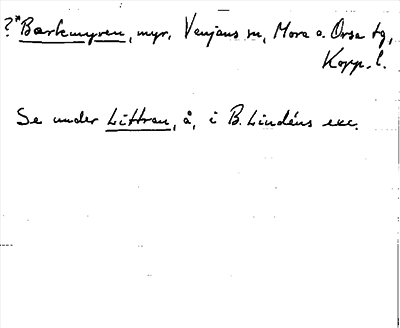 ?*Barkmyren, myr, Venjans sn, Mora o. Orsa tg,
Kopp. l.
Se under Littran, å, i B. Lindéns exc.